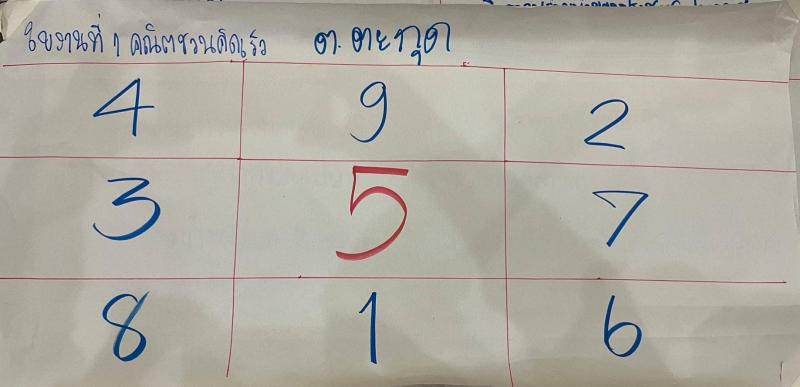 ใบงานที่ 1 คณิตชวนคิดเร็ว ต. ตะกุด
4 9 2
3 5 7
8 1 6